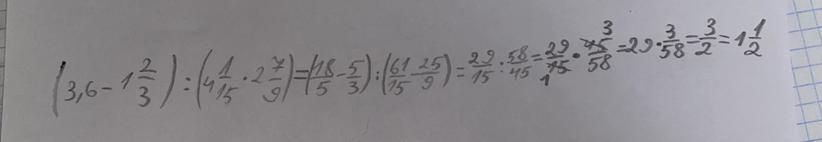 (3,6 - 1 2/3) : (4 1/15 · 2 7/9) = (18/5 - 5/3) : (61/15 - 25/9) = 29/15 : 58/45 = 29/15 · 45/58 = 29 · 3/58 = 3/2 = 1 1/2